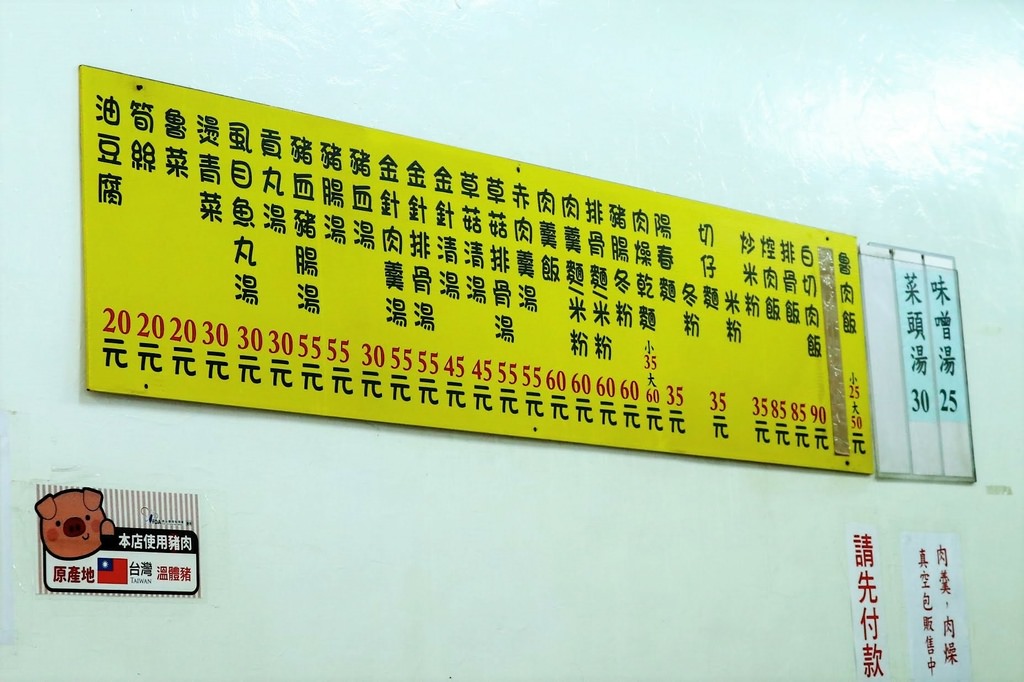 味噌湯 25
菜頭湯 30
魯肉飯 小25大50元
白切肉飯 90元
排骨飯 85元
焢肉飯 85元
炒米粉 35元
米粉
切仔麵 35元
冬粉
陽春麵 35元
肉燥乾麵 小35大60元
豬腸冬粉 60元
排骨麵/米粉 60元
肉羹麵/米粉 60元
肉羹飯 60元
赤肉羹湯 55元
草菇排骨湯 55元
草菇清湯 45元
金針清湯 45元
金針排骨湯 55元
金針肉羹湯 55元
豬血湯 30元
豬腸湯 55元
豬血豬腸湯 55元
貢丸湯 30元
虱目魚丸湯 30元
燙青菜 30元
魯菜 20元
筍絲 20元
油豆腐 20元
本店使用豬肉
原產地 台灣 溫體豬
TAIWAN
肉羹,肉燥
真空包販售中
請先付款